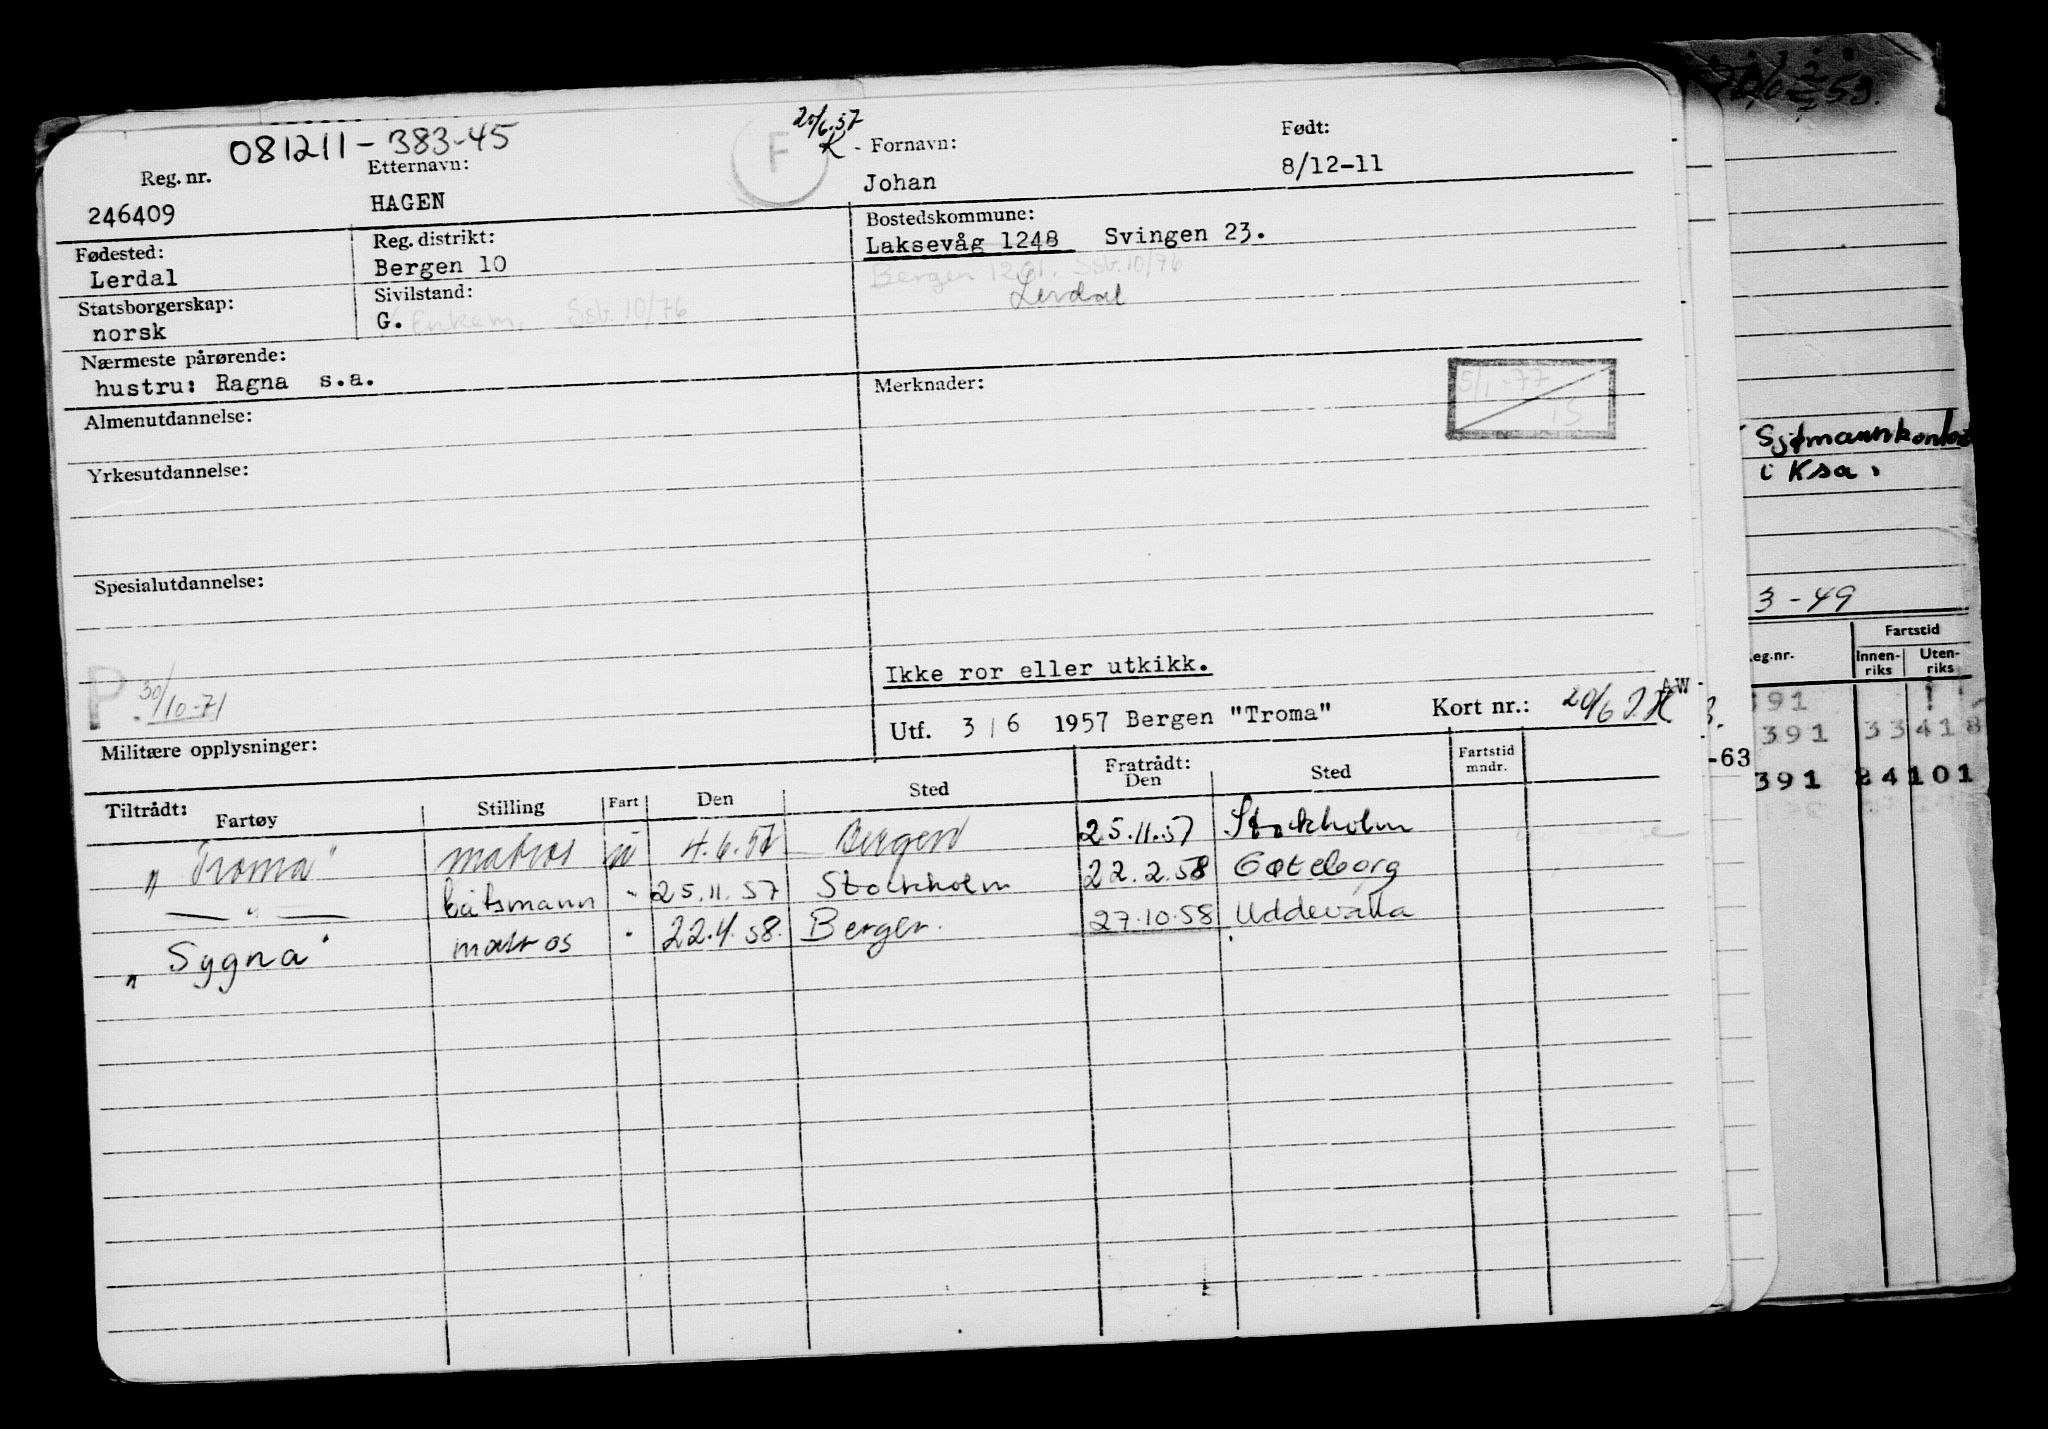 081211-383-45
20/6.57
F
K -
Reg. nr. Etternavn: Fornavn: Født:
246409 HAGEN Johan 8/12-11
Fødested: Reg. distrikt: Bostedskommune:
Lerdal Bergen 10 Laksevåg 1248 Svingen 23.
Bergen 1201. Ssb. 10/76
Lerdal
Statsborgerskap: Sivilstand:
norsk G. Enkem. Ssb. 10/76
Nærmeste pårørende:
hustru: Ragna s.a.
Merknader:
5/1-77
15
Almenutdannelse:
Yrkesutdannelse:
Spesialutdannelse:
P. 30/10-71
Ikke ror eller utkikk.
Militære opplysninger:
Utf. 3/6 1957 Bergen "Troma" Kort nr.: 20/6 J.K AW
Tiltrådt: Fratrådt:
Fartøy Stilling Fart Den Sted Den Sted Fartstid mndr.
"Troma" matros u 4.6.57 Bergen 25.11.57 Stockholm
— " — båtsmann " 25.11.57 Stockholm 22.2.58 Gøteborg
"Sygna" matros " 22.4.58. Bergen. 27.10.58 Uddevalla
53.
Sjømannskontor
i Ksa.
3-49
eg.nr. Fartstid
Innenriks Utenriks
391
391 33 418
-63
391 24 101